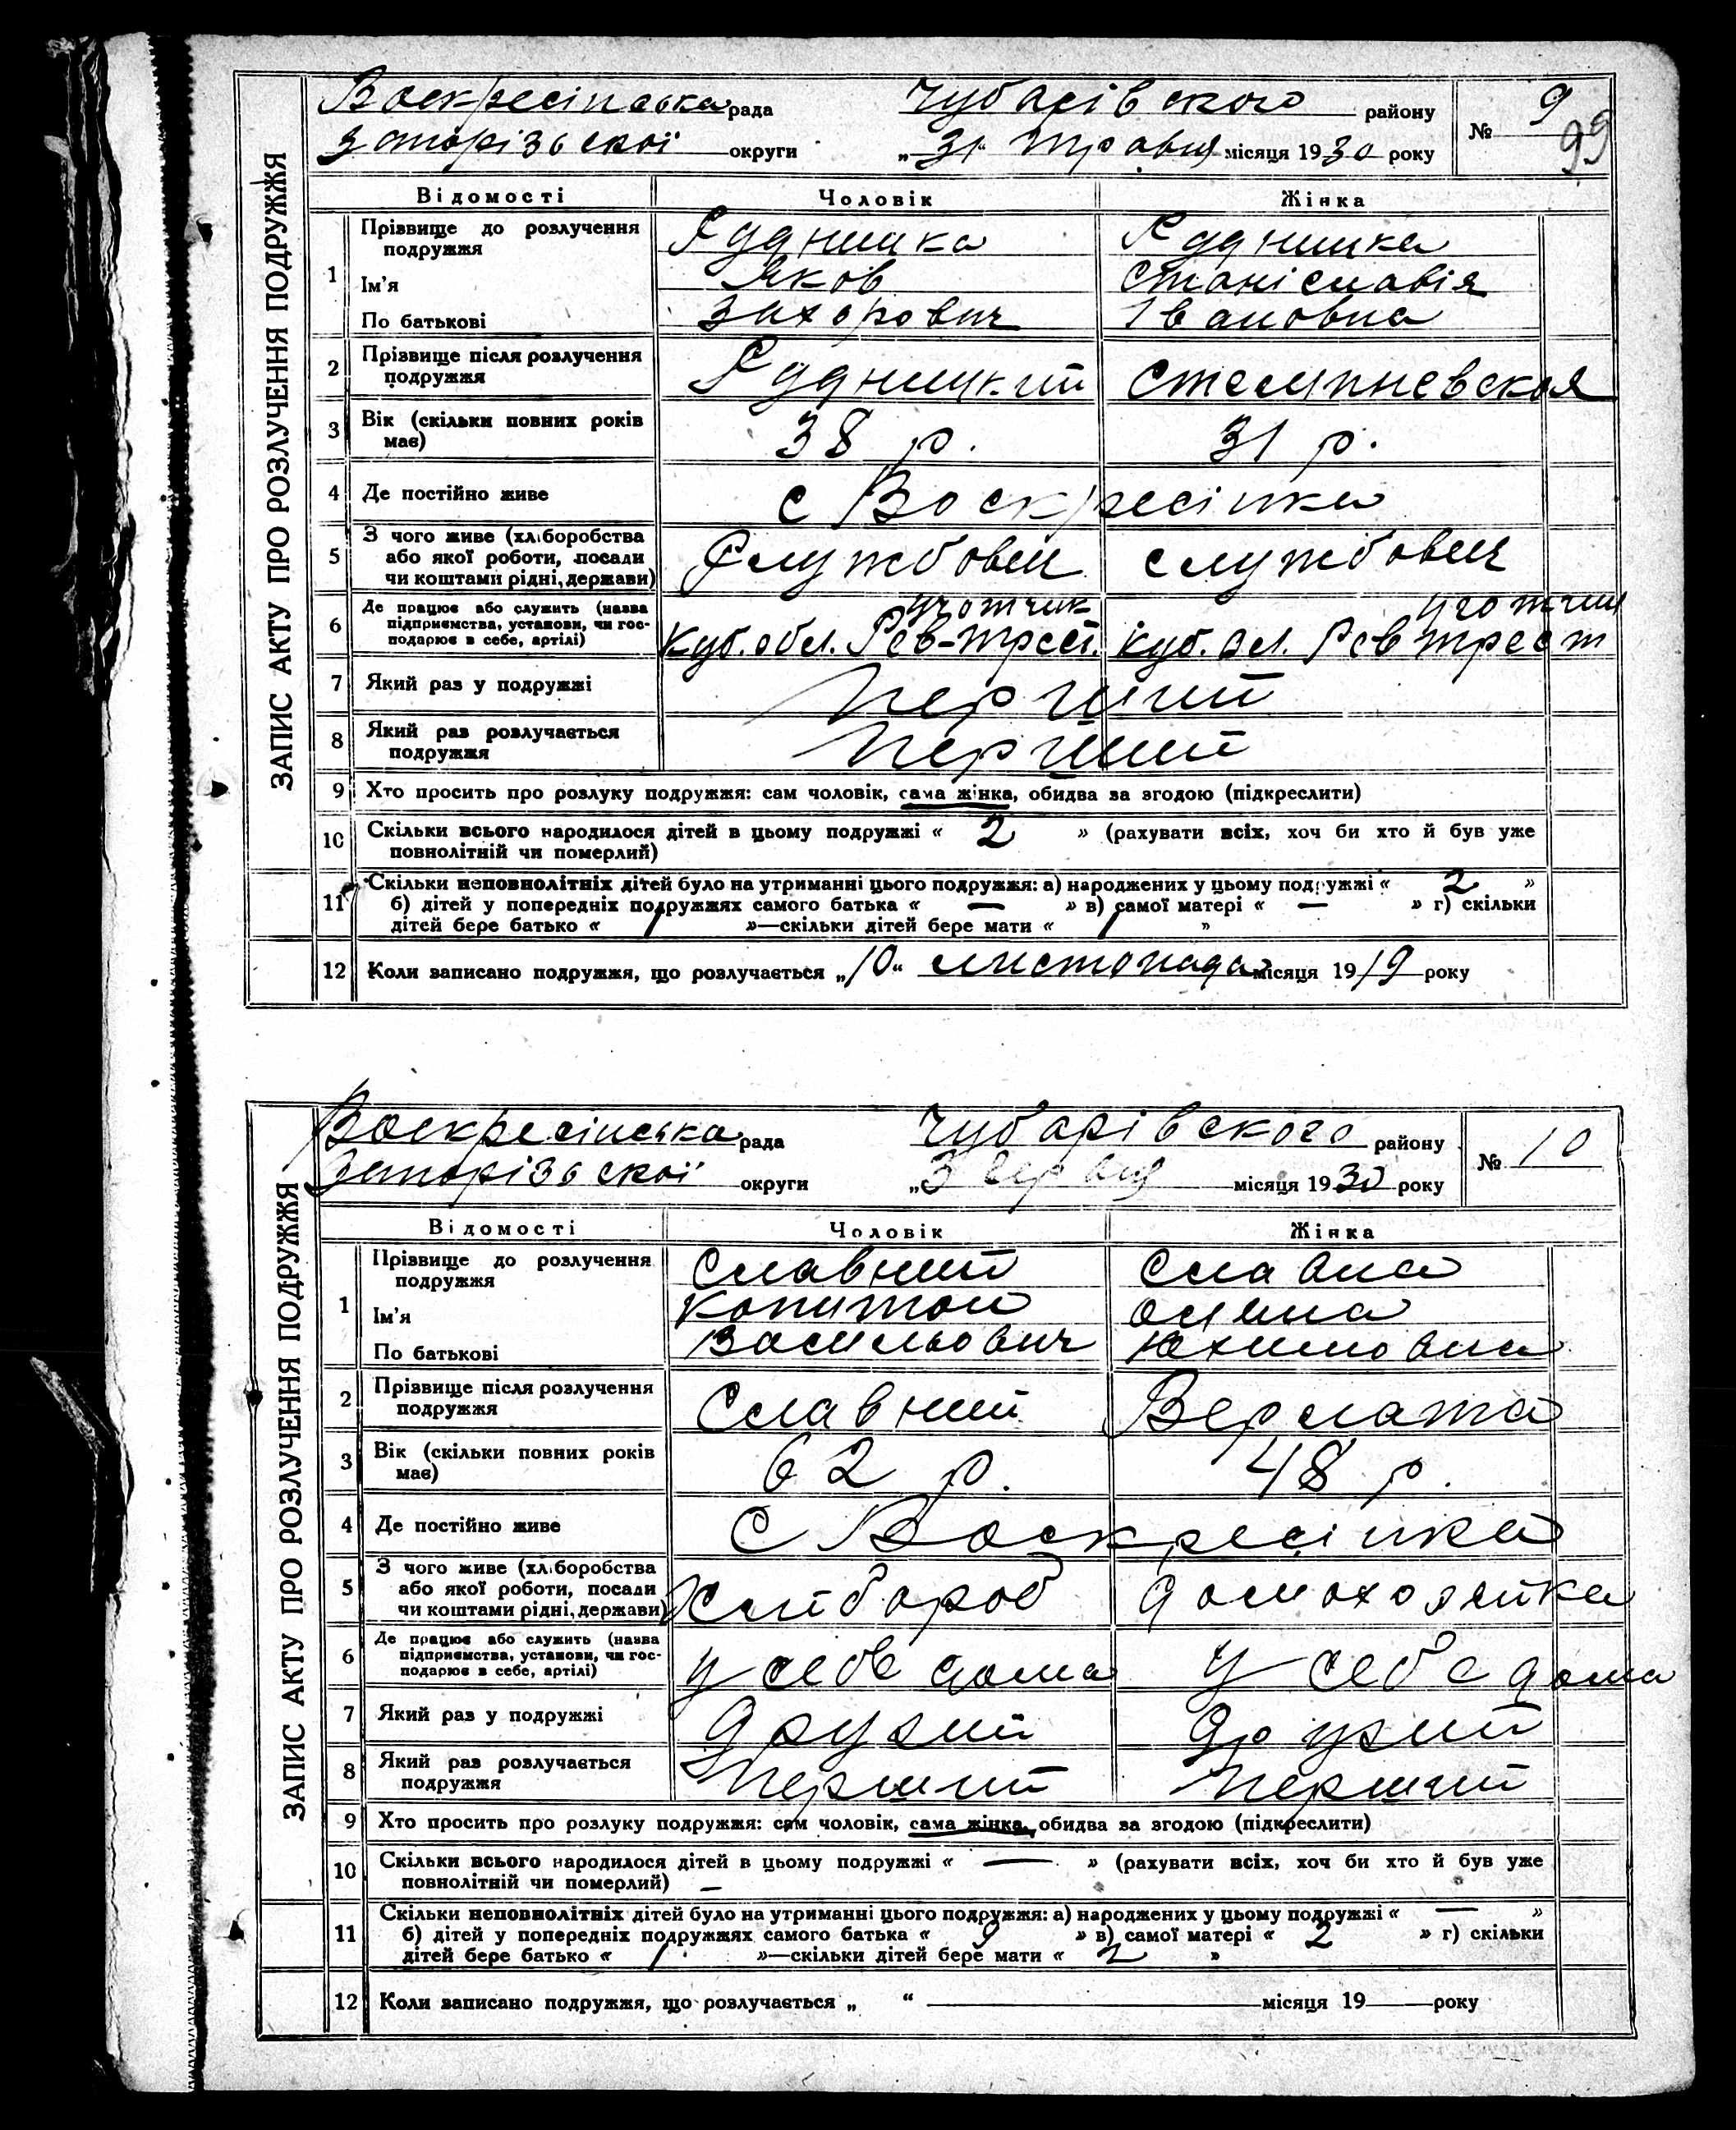 ЗАПИС АКТУ ПРО РОЗЛУЧЕННЯ ПОДРУЖЖЯ
Воскресінська рада Чубарівского району № 9
99
Запорізьскої округи „31" травня місяця 1930 року
Відомості Чоловік Жінка
1 Прізвище до розлучення подружжя
Ім'я Яков Станіславія
По батькові Захорович Івановна
2 Прізвище після розлучення подружжя
3 Вік (скільки повних років має) 38 р. 31 р.
4 Де постійно живе с Воскресінка
5 З чого живе (хліборобства
або якої роботи, посади Службовец службовец
чи коштами рідні, держави)
6 Де працює або служить (назва
підприємства, установи, чи гос-
подарює в себе, артілі)
7 Який раз у подружжі перший
8 Який раз розлучається подружжя перший
9 Хто просить про розлуку подружжя: сам чоловік, сама жінка, обидва за згодою (підкреслити)
10 Скільки всього народилося дітей в цьому подружжі « 2 » (рахувати всіх, хоч би хто й був уже
повнолітній чи померлий)
11 Скільки неповнолітніх дітей було на утриманні цього подружжя: а) народжених у цьому подружжі « 2 »
б) дітей у попередніх подружжях самого батька « — » в) самої матері « — » г) скільки
дітей бере батько « 1 »—скільки дітей бере мати « 1 »
12 Коли записано подружжя, що розлучається „10" листопада місяця 1919 року
ЗАПИС АКТУ ПРО РОЗЛУЧЕННЯ ПОДРУЖЖЯ
Воскресінська рада Чубарівского району № 10
Запорізьскої округи „3 червня місяця 1930 року
Відомості Чоловік Жінка
1 Прізвище до розлучення подружжя Славний Славна
Ім'я Капитон
По батькові Васильович Юхимовна
2 Прізвище після розлучення подружжя Славний Верлата
3 Вік (скільки повних років має) 62 р. 48 р.
4 Де постійно живе С Воскресінка
5 З чого живе (хліборобства
або якої роботи, посади Хлибороб домохозяйка
чи коштами рідні, держави)
6 Де працює або служить (назва
підприємства, установи, чи гос- у себе дома у себе дома
подарює в себе, артілі)
7 Який раз у подружжі другий другий
8 Який раз розлучається подружжя перший перший
9 Хто просить про розлуку подружжя: сам чоловік, сама жінка, обидва за згодою (підкреслити)
10 Скільки всього народилося дітей в цьому подружжі « — » (рахувати всіх, хоч би хто й був уже
повнолітній чи померлий) —
11 Скільки неповнолітніх дітей було на утриманні цього подружжя: а) народжених у цьому подружжі « — »
б) дітей у попередніх подружжях самого батька « » в) самої матері « 2 » г) скільки
дітей бере батько « 1 »—скільки дітей бере мати « 2 »
12 Коли записано подружжя, що розлучається „ " місяця 19 року